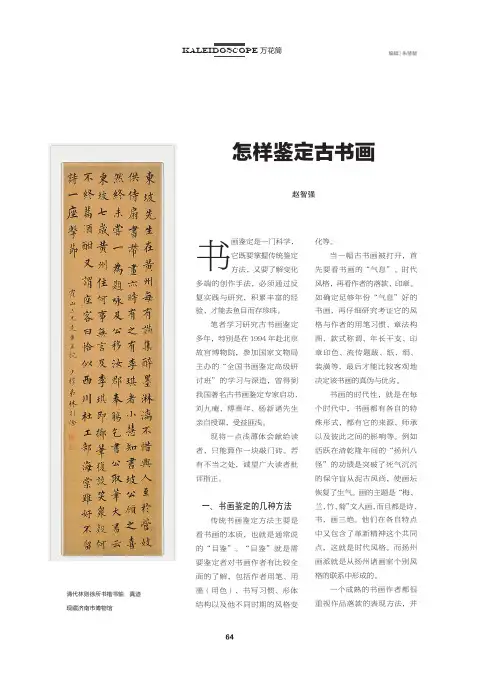 KALEIDOSCOPE 万花筒
怎样鉴定古书画
赵智强
東坡先生在黄州每有燕集醉墨淋漓不惜與人至於營妓
供侍扇書帶畫亦時有之有李琪者小慧知書坡公顧之喜
然終未嘗一為題咏及公移汝郡奉觴乞書公取筆大書云
東坡七歲黄州住何事無言及李琪即擲筆談笑
不終篇酒酣又請座客曰恰似西川杜工部海棠雖好不留
詩一座擊節
清代林则徐所书楷书轴 真迹
现藏济南市博物馆
书画鉴定是一门科学,
它既要掌握传统鉴定
方法,又要了解变化
多端的创作手法,必须通过反
复实践与研究,积累丰富的经
验,才能去鱼目而存珍珠。
笔者学习研究古书画鉴定
多年,特别是在 1994 年赴北京
故宫博物院,参加国家文物局
主办的“全国书画鉴定高级研
讨班”的学习与深造,曾得到
我国著名古书画鉴定专家启功、
刘九庵、傅熹年、杨新诸先生
亲自授课,受益匪浅。
现将一点浅薄体会献给读
者,只能算作一块敲门砖。若
有不当之处,诚望广大读者批
评指正。
一、书画鉴定的几种方法
传统书画鉴定方法主要是
看书画的本质,也就是通常说
的“目鉴”。“目鉴”就是需
要鉴定者对书画作者有比较全
面的了解,包括作者用笔、用
墨(用色)、书写习惯、形体
结构以及他不同时期的风格变
化等。
当一幅古书画被打开,首
先要看书画的“气息”、时代
风格,再看作者的落款、印章。
如确定足够年份“气息”好的
书画,再仔细研究考证它的风
格与作者的用笔习惯、章法构
图、款式称谓、年长干支、印
章印色、流传题跋、纸、绢、
装潢等,最后才能比较客观地
决定该书画的真伪与优劣。
书画的时代性,就是在每
个时代中,书画都有各自的特
殊形式,都有它的来源、师承
以及彼此之间的影响等。例如
活跃在清乾隆年间的“扬州八
怪”的功绩是突破了死气沉沉
的保守盲从泥古风尚,使画坛
恢复了生气。画的主题是“梅、
兰、竹、菊”文人画,而且都是诗、
书、画三绝。他们在各自特点
中又包含了革新精神这个共同
点。这就是时代风格。而扬州
画派就是从扬州诸画家个别风
格的联系中形成的。
一个成熟的书画作者都很
重视作品落款的表现方法,并
64